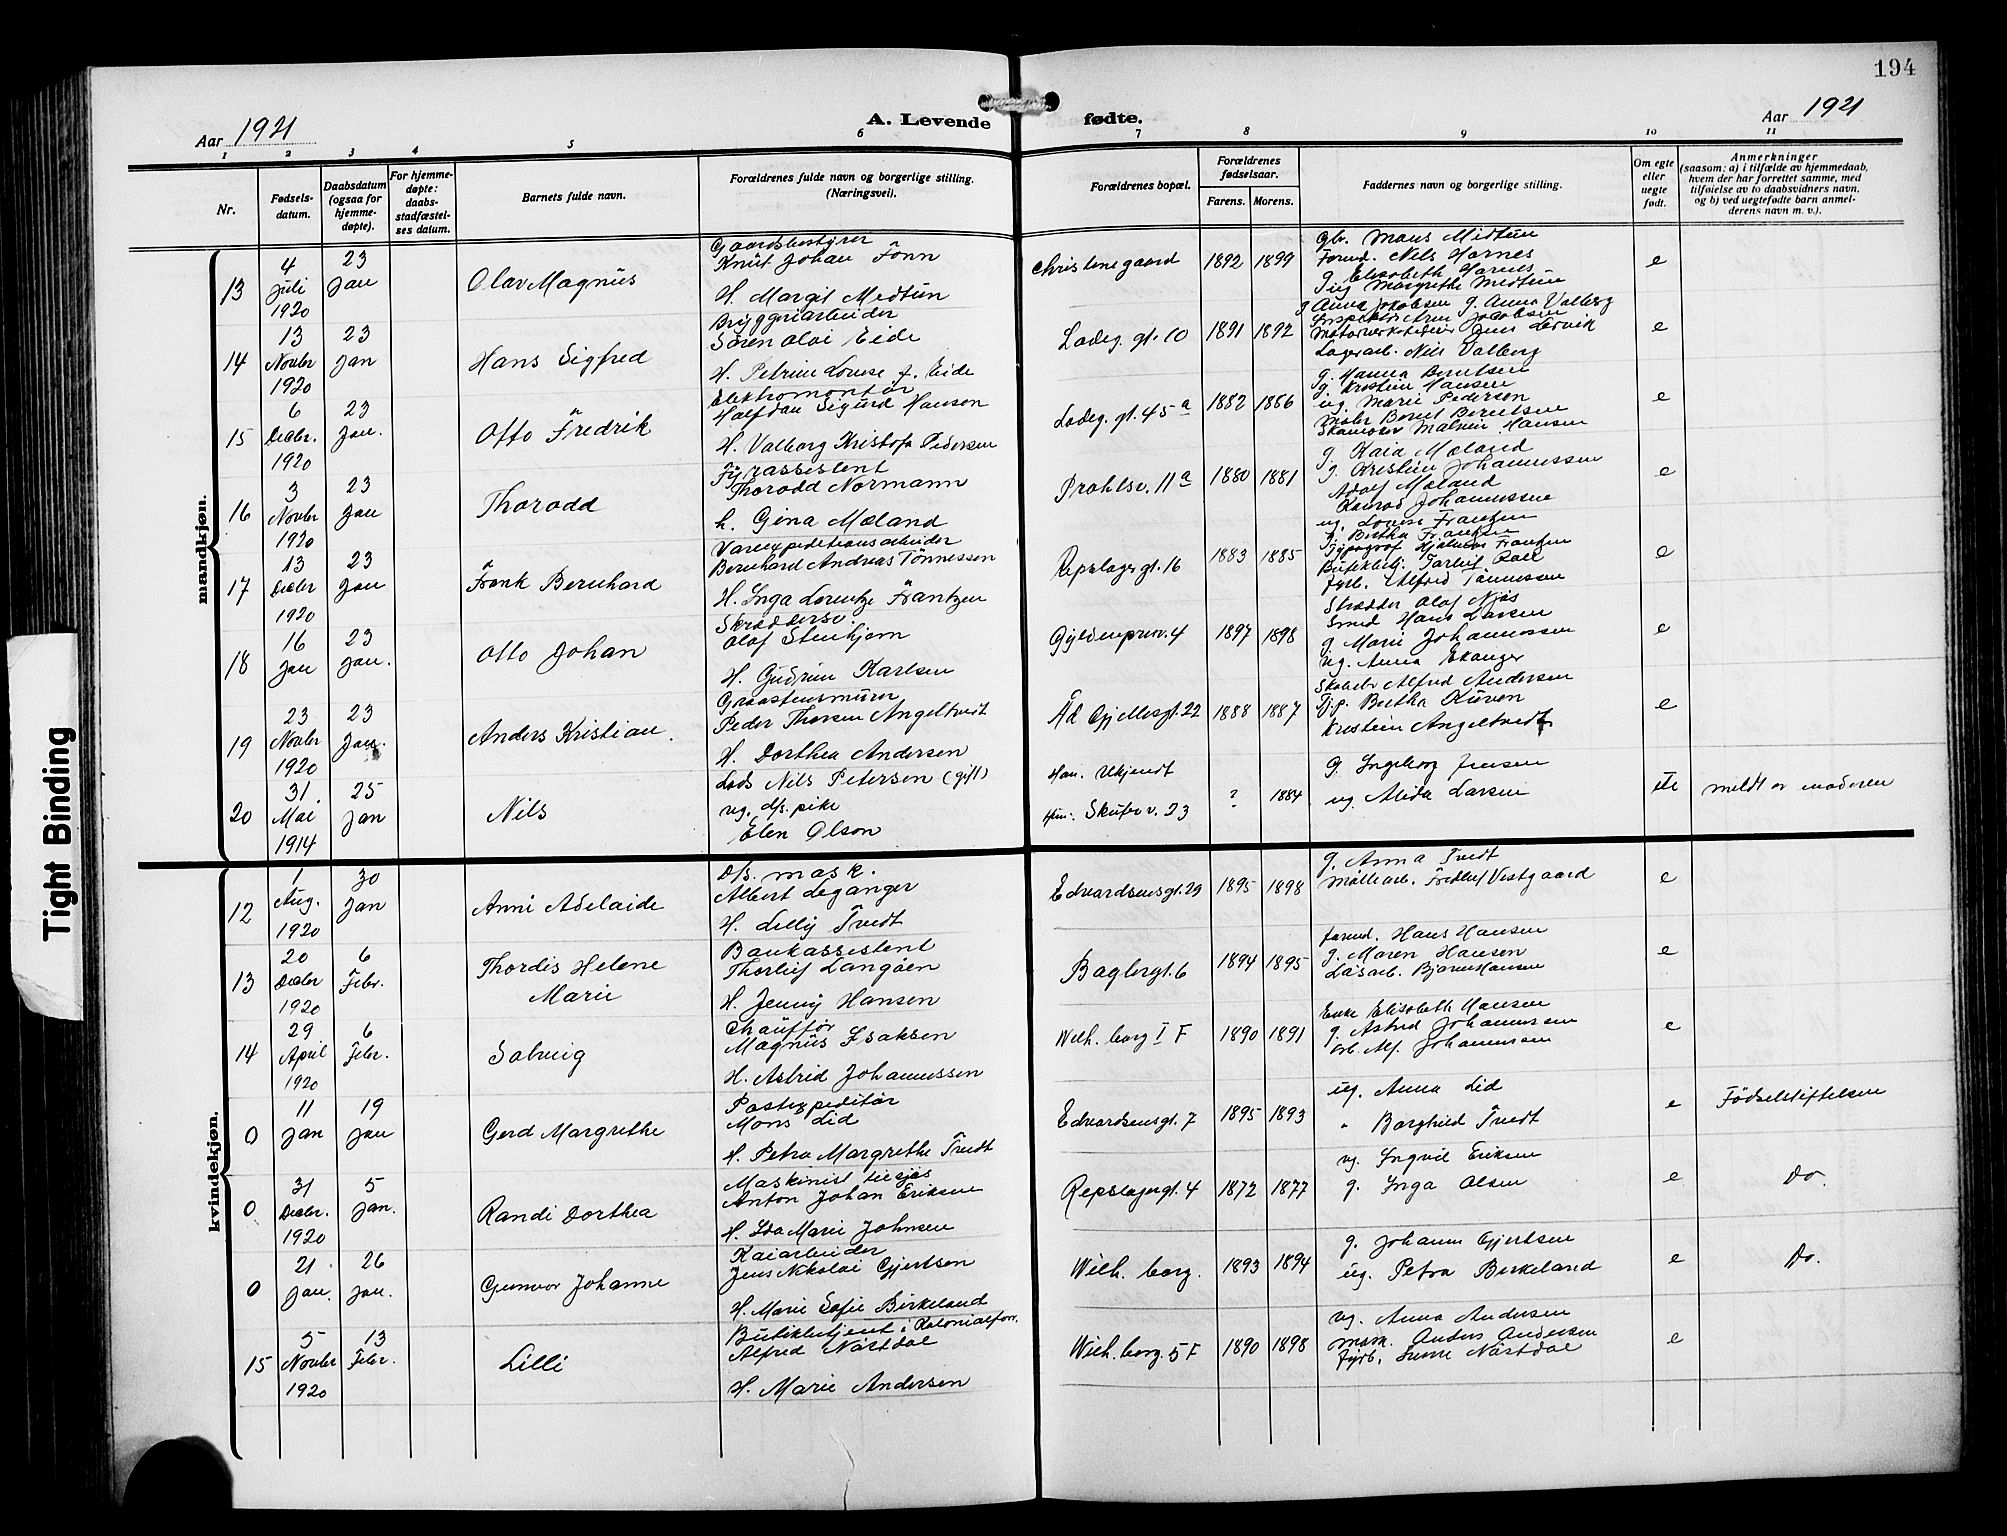 194
Aar 1921
A. Levende fødte.
Aar 1921
1 2 3 4 5 6 7 8 9 10 11
Nr.
Fødsels-
datum.
Daabsdatum
(ogsaa for
hjemme-
døpte).
For hjemme-
døpte:
daabs-
stadfæstel-
ses datum.
Barnets fulde navn.
Forældrenes fulde navn og borgerlige stilling.
(Næringsvei).
Forældrenes bopæl.
Forældrenes
fødselsaar.
Farens. Morens.
Faddernes navn og borgerlige stilling.
Om egte
eller
uegte
født.
Anmerkninger
(saasom: a) i tilfælde av hjemmedaab,
hvem der har forrettet samme, med
tilføielse av to daabsvidners navn,
og b) ved uegtefødte barn anmel-
derens navn m. v.).
mandkjøn.
13
4 Juli 1920
23 Jan
Olav Magnus
Gaardsbestyrer
Knut Johan Fonn
H. Margit Medtun
Christinegaard
1892 1899
gbr. Mons Midtun
Form. Nils Hornes
g. Elisabeth Hornes
ug Margrethe Medtun
e
14
13 Novbr 1920
23 Jan
Hans Sigfred
Bryggeriarbeider
Søren Olai Eide
H. Petrine Louise f. Eide
Ladeg. gt. 10
1891 1892
g Anna Jakobsen g. Anna Valberg
Jacobsen
Motorverksteder Jens Lervik
Lagerarb. Nils Valberg
e
15
6 Decbr. 1920
23 Jan.
Otto Fredrik
Elektromontør
Halfdan Sigurd Hansen
H. Valborg Kristofa Pedersen
Ladeg. gt. 45 a
1882 1886
g. Hanna Berntsen
g. Kristine Hansen
ug. Marie Pedersen
Maler Bernt Berntsen
Hansen
e
16
3 Novbr 1920
23 Jan
Thorodd
Fyrassistent
Thorodd Normann
h. Gina Mæland
Prahlsv. 11 a
1880 1881
g. Kaia Mæland
g. Kristine Johannessen
Adolf Mæland
Konrad Johannessen
e
17
13 Decbr 1920
23 Jan
Frank Bernhard
Vareexpeditionsarbeider
Bernhard Andreas Tønnessen
H. Inga Lorentze Frantzen
Repslager gt. 16
1883 1885
ug. Louise Frantzen
g. Bertha Frantzen
Typograf Hjalmar Frantzen
Fyrb. Alfred Tønnessen
e
18
16 Jan
23 Jan.
Otto Johan
Skræddersv.
Olaf Stenhjem
H. Gudrun Karlsen
Gyldenprisv. 4
1897 1898
Skrædder Olaf Njøs
Smed Hans Larsen
g. Marie Johannessen
ug. Anna Ekanger
e
19
23 Novbr 1920
23 Jan.
Anders Kristian.
Graastensmurer
Peder Thorsen Angeltvedt
H. Dorthea Andersen
Ad Gjellesgt. 22
1888 1887
Alfred Andersen
Tj.p. Bertha
Kristine Angeltvedt
e
20
31 Mai 1914
25 Jan
Nils
Lods Nils Petersen (gift)
ug. d/s. pike
Elen Olson
Han. Ukjendt
Hun: Skuter v. 23
? 1884
g. Ingeborg Jensen
ug. Alida Larsen
Ue
meldt av moderen
kvindekjøn.
12
1 Aug. 1920
30 Jan
Anni Adelaide
D/s. mask.
Albert Leganger
H. Lilly Tvedt
Edvardsensgt. 29
1895 1898
g. Anna Tvedt
Møllearb. Fredlef Vestgaard
e
13
20 Decbr 1920
6 Febr.
Thordis Helene
Marie
Bankassistent
Thorleif Langøen
H. Jenny Hansen
Baglergt. 6
1894 1895
form. Hans Hansen
g. Maren Hansen
Bjarne Hansen
e
14
29 April 1920
6 Febr.
Solveig
Chauffør
Magnus Isaksen
H. Astrid Johannessen
Wilh. borg I F
1890 1891
Enke Elisabeth Hansen
g. Astrid Johannessen
arb. Alf. Johannessen
e
0
11 Jan
19 Jan
Gerd Margrethe
Postexpeditør
Mons Lid
H. Petra Margrethe Tvedt
Edvardsensgt. 7
1895 1893
ug. Anna Lid
" Borghild Tvedt
e
Fødselstiftelsen
0
31 Decbr. 1920
5 Jan.
Randi Dorthea
Maskinist tilsjøs
Anton Johan Eriksen
H. Ida Marie Johnsen
Repslagergt. 4
1872 1877
ug. Ingvil Eriksen
g. Inga Olsen
e
Do.
0
21 Jan.
26 Jan.
Gunvor Johanne
Kaiarbeider
Jens Nikolai Gjertsen
H. Marie Sofie Birkeland
Wilh. borg.
1893 1894
g. Johanne Gjertsen
ug. Petra Birkeland
e
Do.
15
5 Novbr 1920
13 Febr.
Lilli
Butikbetjent i Kolonialforr.
Alfred Nåstdal
H. Marie Andersen
Wilh. borg. 5 F
1890 1898
ug. Anna Andersen
mask. Anders Andersen
Fyrb. Nåstdal
e
Tight Binding